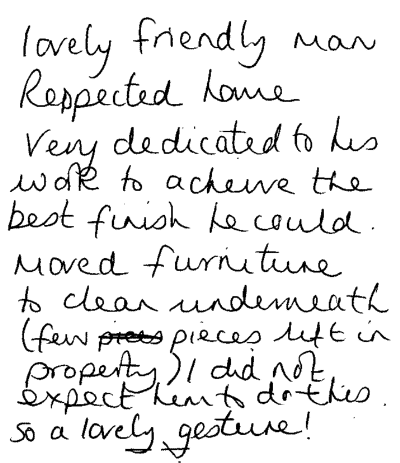 lovely friendly man
Reppected home
Very dedicated to his
work to acheive the
best finish he could.
Moved furniture
to clean underneath
(few pieces pieces left in
property) I did not
expect him to do this.
so a lovely gesture!